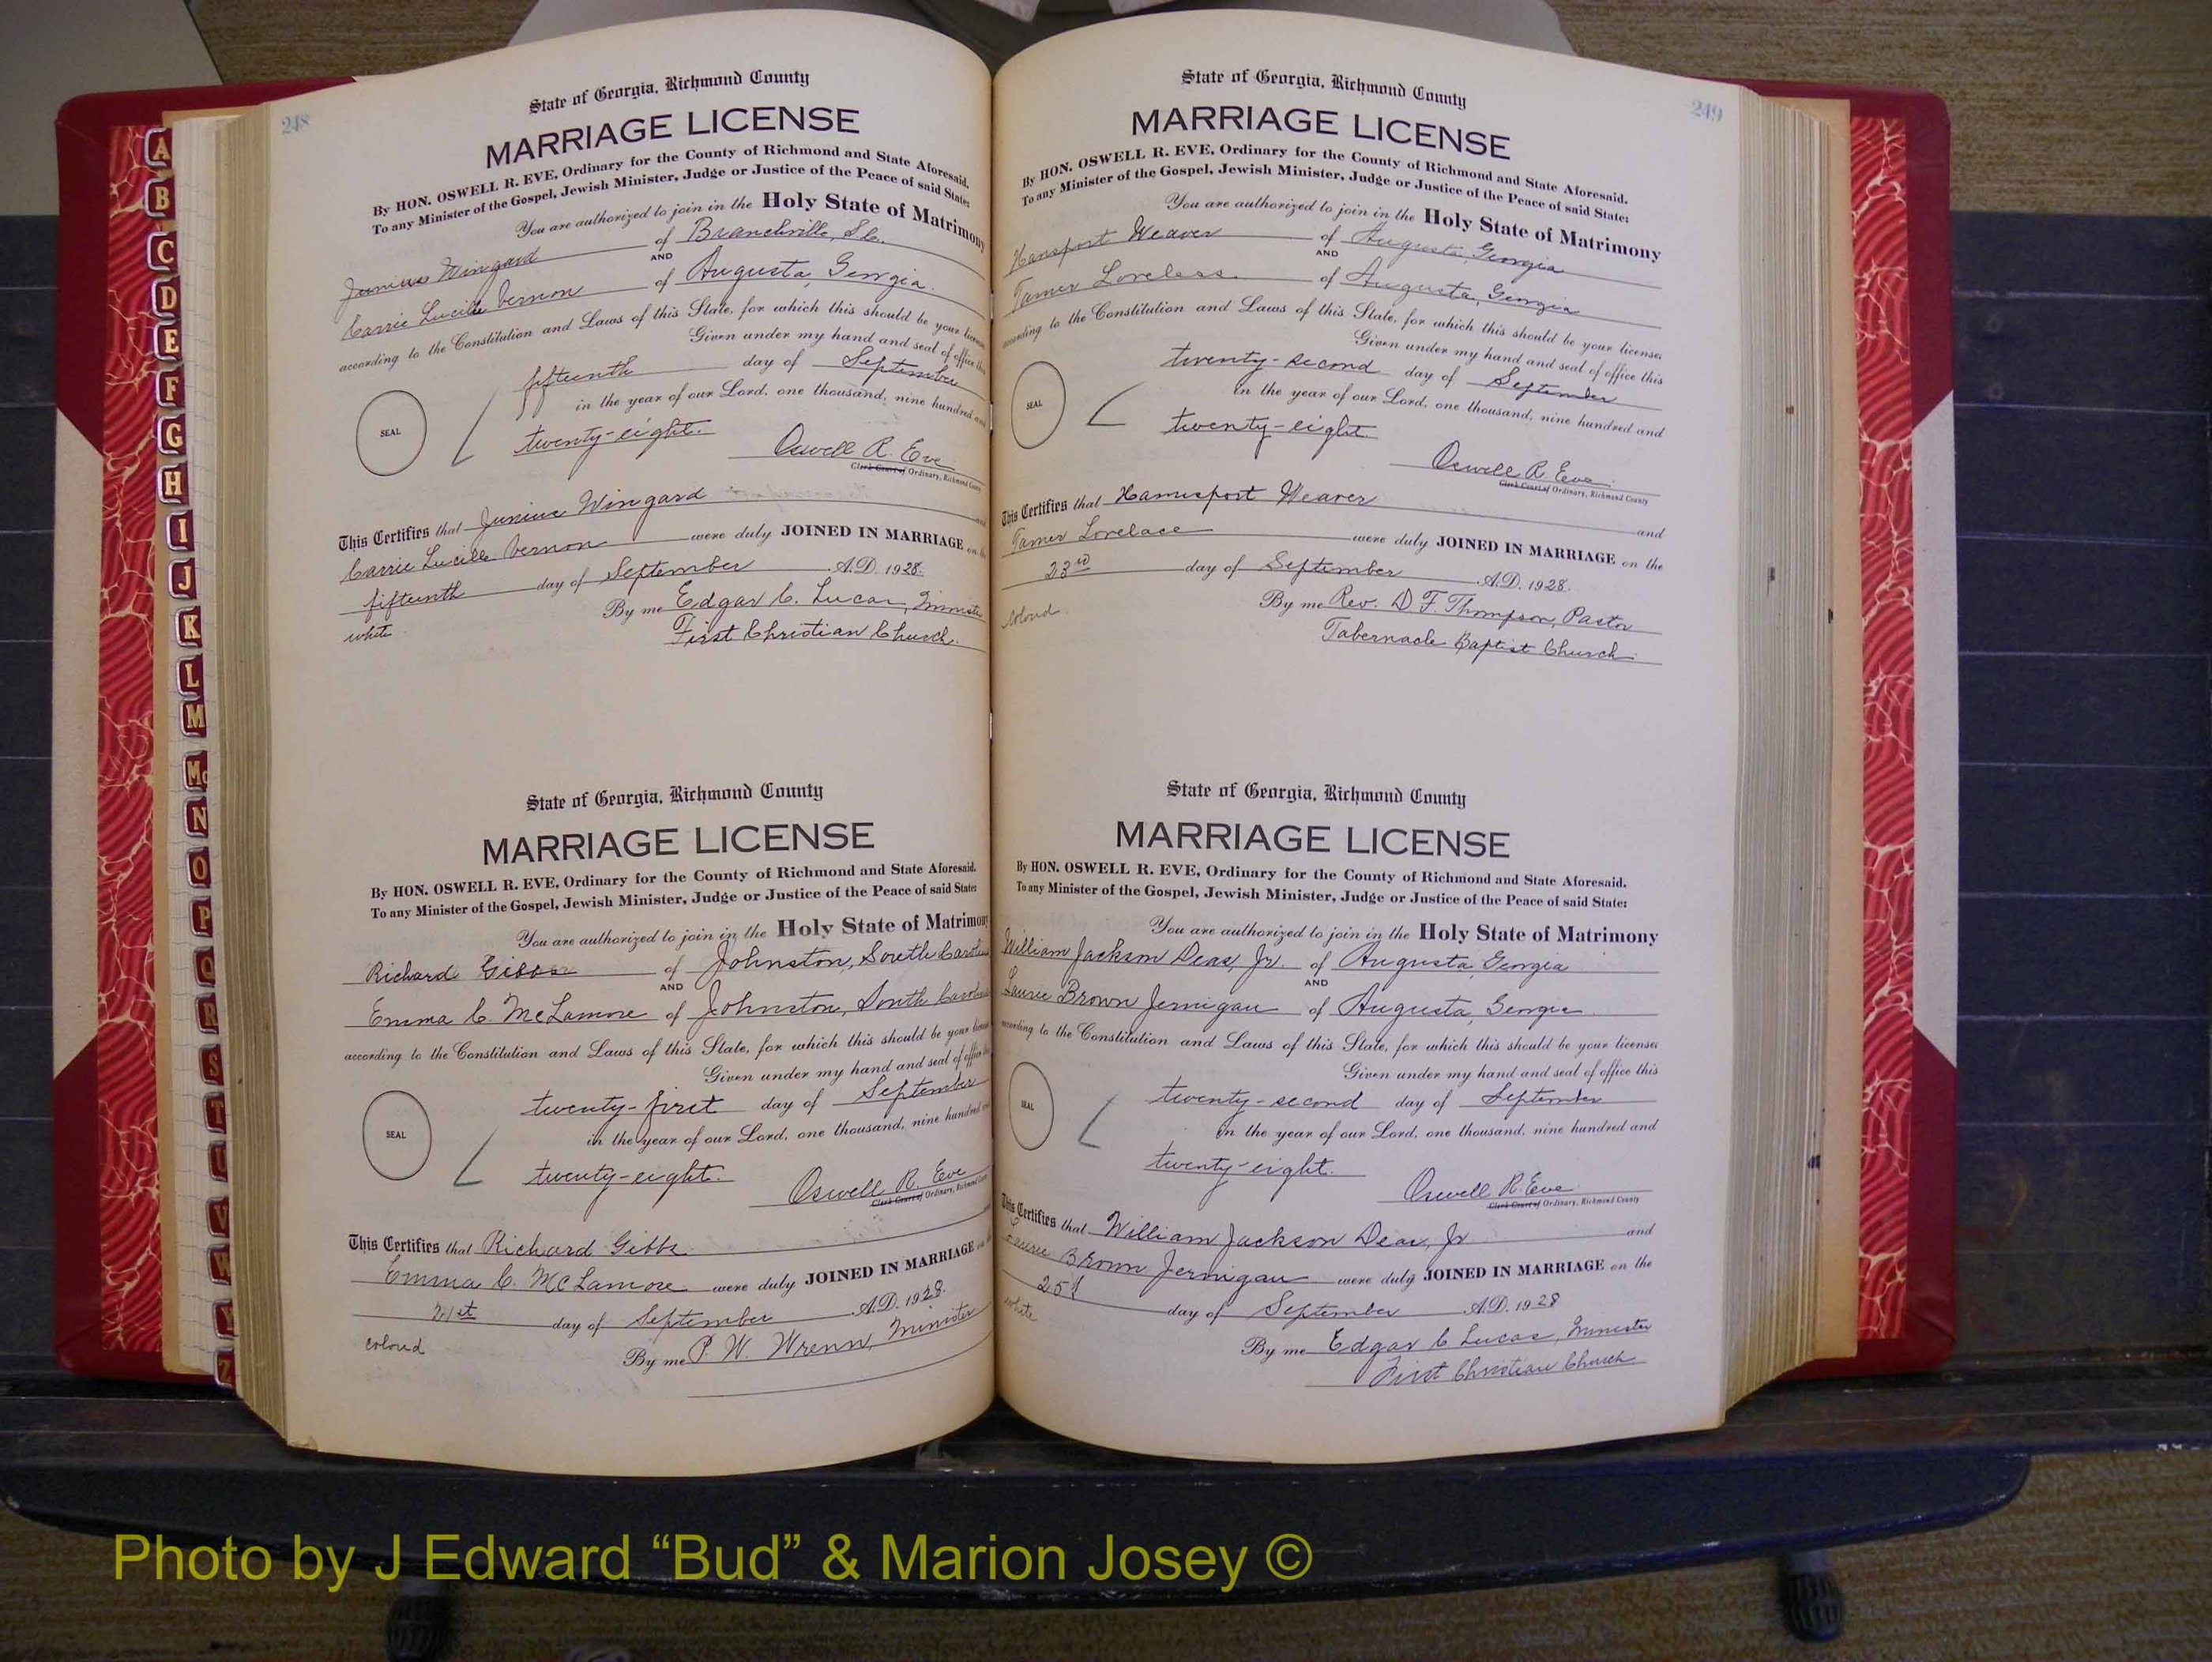 248
State of Georgia, Richmond County
MARRIAGE LICENSE
By HON. OSWELL R. EVE, Ordinary for the County of Richmond and State Aforesaid.
To any Minister of the Gospel, Jewish Minister, Judge or Justice of the Peace of said State:
You are authorized to join in the Holy State of Matrimony
Junius Wingard of Branchville, S.C.
AND
Carrie Lucile Vernon of Augusta, Georgia.
according to the Constitution and Laws of this State, for which this should be your license
Given under my hand and seal of office this
fifteenth day of September
in the year of our Lord, one thousand, nine hundred and
SEAL
twenty-eight.
Oswell R. Eve
Clerk Court of Ordinary, Richmond County
This Certifies that Junius Wingard and
Carrie Lucile Vernon were duly JOINED IN MARRIAGE on the
fifteenth day of September A.D. 1928.
By me Edgar C. Lucas, Minister
white First Christian Church.
State of Georgia, Richmond County
MARRIAGE LICENSE
By HON. OSWELL R. EVE, Ordinary for the County of Richmond and State Aforesaid.
To any Minister of the Gospel, Jewish Minister, Judge or Justice of the Peace of said State:
You are authorized to join in the Holy State of Matrimony
Richard Gibbs of Johnston, South Carolina
AND
Emma C. McLamore of Johnston, South Carolina
according to the Constitution and Laws of this State, for which this should be your license
Given under my hand and seal of office this
twenty-first day of September
in the year of our Lord, one thousand, nine hundred and
SEAL
twenty-eight.
Oswell R. Eve
Clerk Court of Ordinary, Richmond County
This Certifies that Richard Gibbs
Emma C. McLamore were duly JOINED IN MARRIAGE on
21st day of September A.D. 1928.
colored By me P. W. Wrenn, Minister
249
State of Georgia, Richmond County
MARRIAGE LICENSE
By HON. OSWELL R. EVE, Ordinary for the County of Richmond and State Aforesaid.
To any Minister of the Gospel, Jewish Minister, Judge or Justice of the Peace of said State:
You are authorized to join in the Holy State of Matrimony
Weaver of Augusta, Georgia
AND
Tamer Loveless of Augusta, Georgia
according to the Constitution and Laws of this State, for which this should be your license
Given under my hand and seal of office this
twenty-second day of September
in the year of our Lord, one thousand, nine hundred and
SEAL
twenty-eight
Oswell R. Eve
Clerk Court of Ordinary, Richmond County
This Certifies that Weaver and
Tamer Lovelace were duly JOINED IN MARRIAGE on the
23rd day of September A.D. 1928.
By me Rev. D. F. Thompson, Pastor
colored Tabernacle Baptist Church
State of Georgia, Richmond County
MARRIAGE LICENSE
By HON. OSWELL R. EVE, Ordinary for the County of Richmond and State Aforesaid.
To any Minister of the Gospel, Jewish Minister, Judge or Justice of the Peace of said State:
You are authorized to join in the Holy State of Matrimony
William Jackson Deas, Jr. of Augusta, Georgia
AND
Laurie Brown Jernigan of Augusta, Georgia
according to the Constitution and Laws of this State, for which this should be your license
Given under my hand and seal of office this
twenty-second day of September
in the year of our Lord, one thousand, nine hundred and
SEAL
twenty-eight.
Oswell R. Eve
Clerk Court of Ordinary, Richmond County
This Certifies that William Jackson Deas, Jr and
Laurie Brown Jernigan were duly JOINED IN MARRIAGE on the
25 day of September A.D. 1928
white By me Edgar C Lucas, Minister
First Christian Church
A
B
C
D
E
F
G
H
I
J
K
L
M
Mc
N
O
P
Q
R
S
T
U
V
W
Y
Z
Photo by J Edward “Bud” & Marion Josey ©